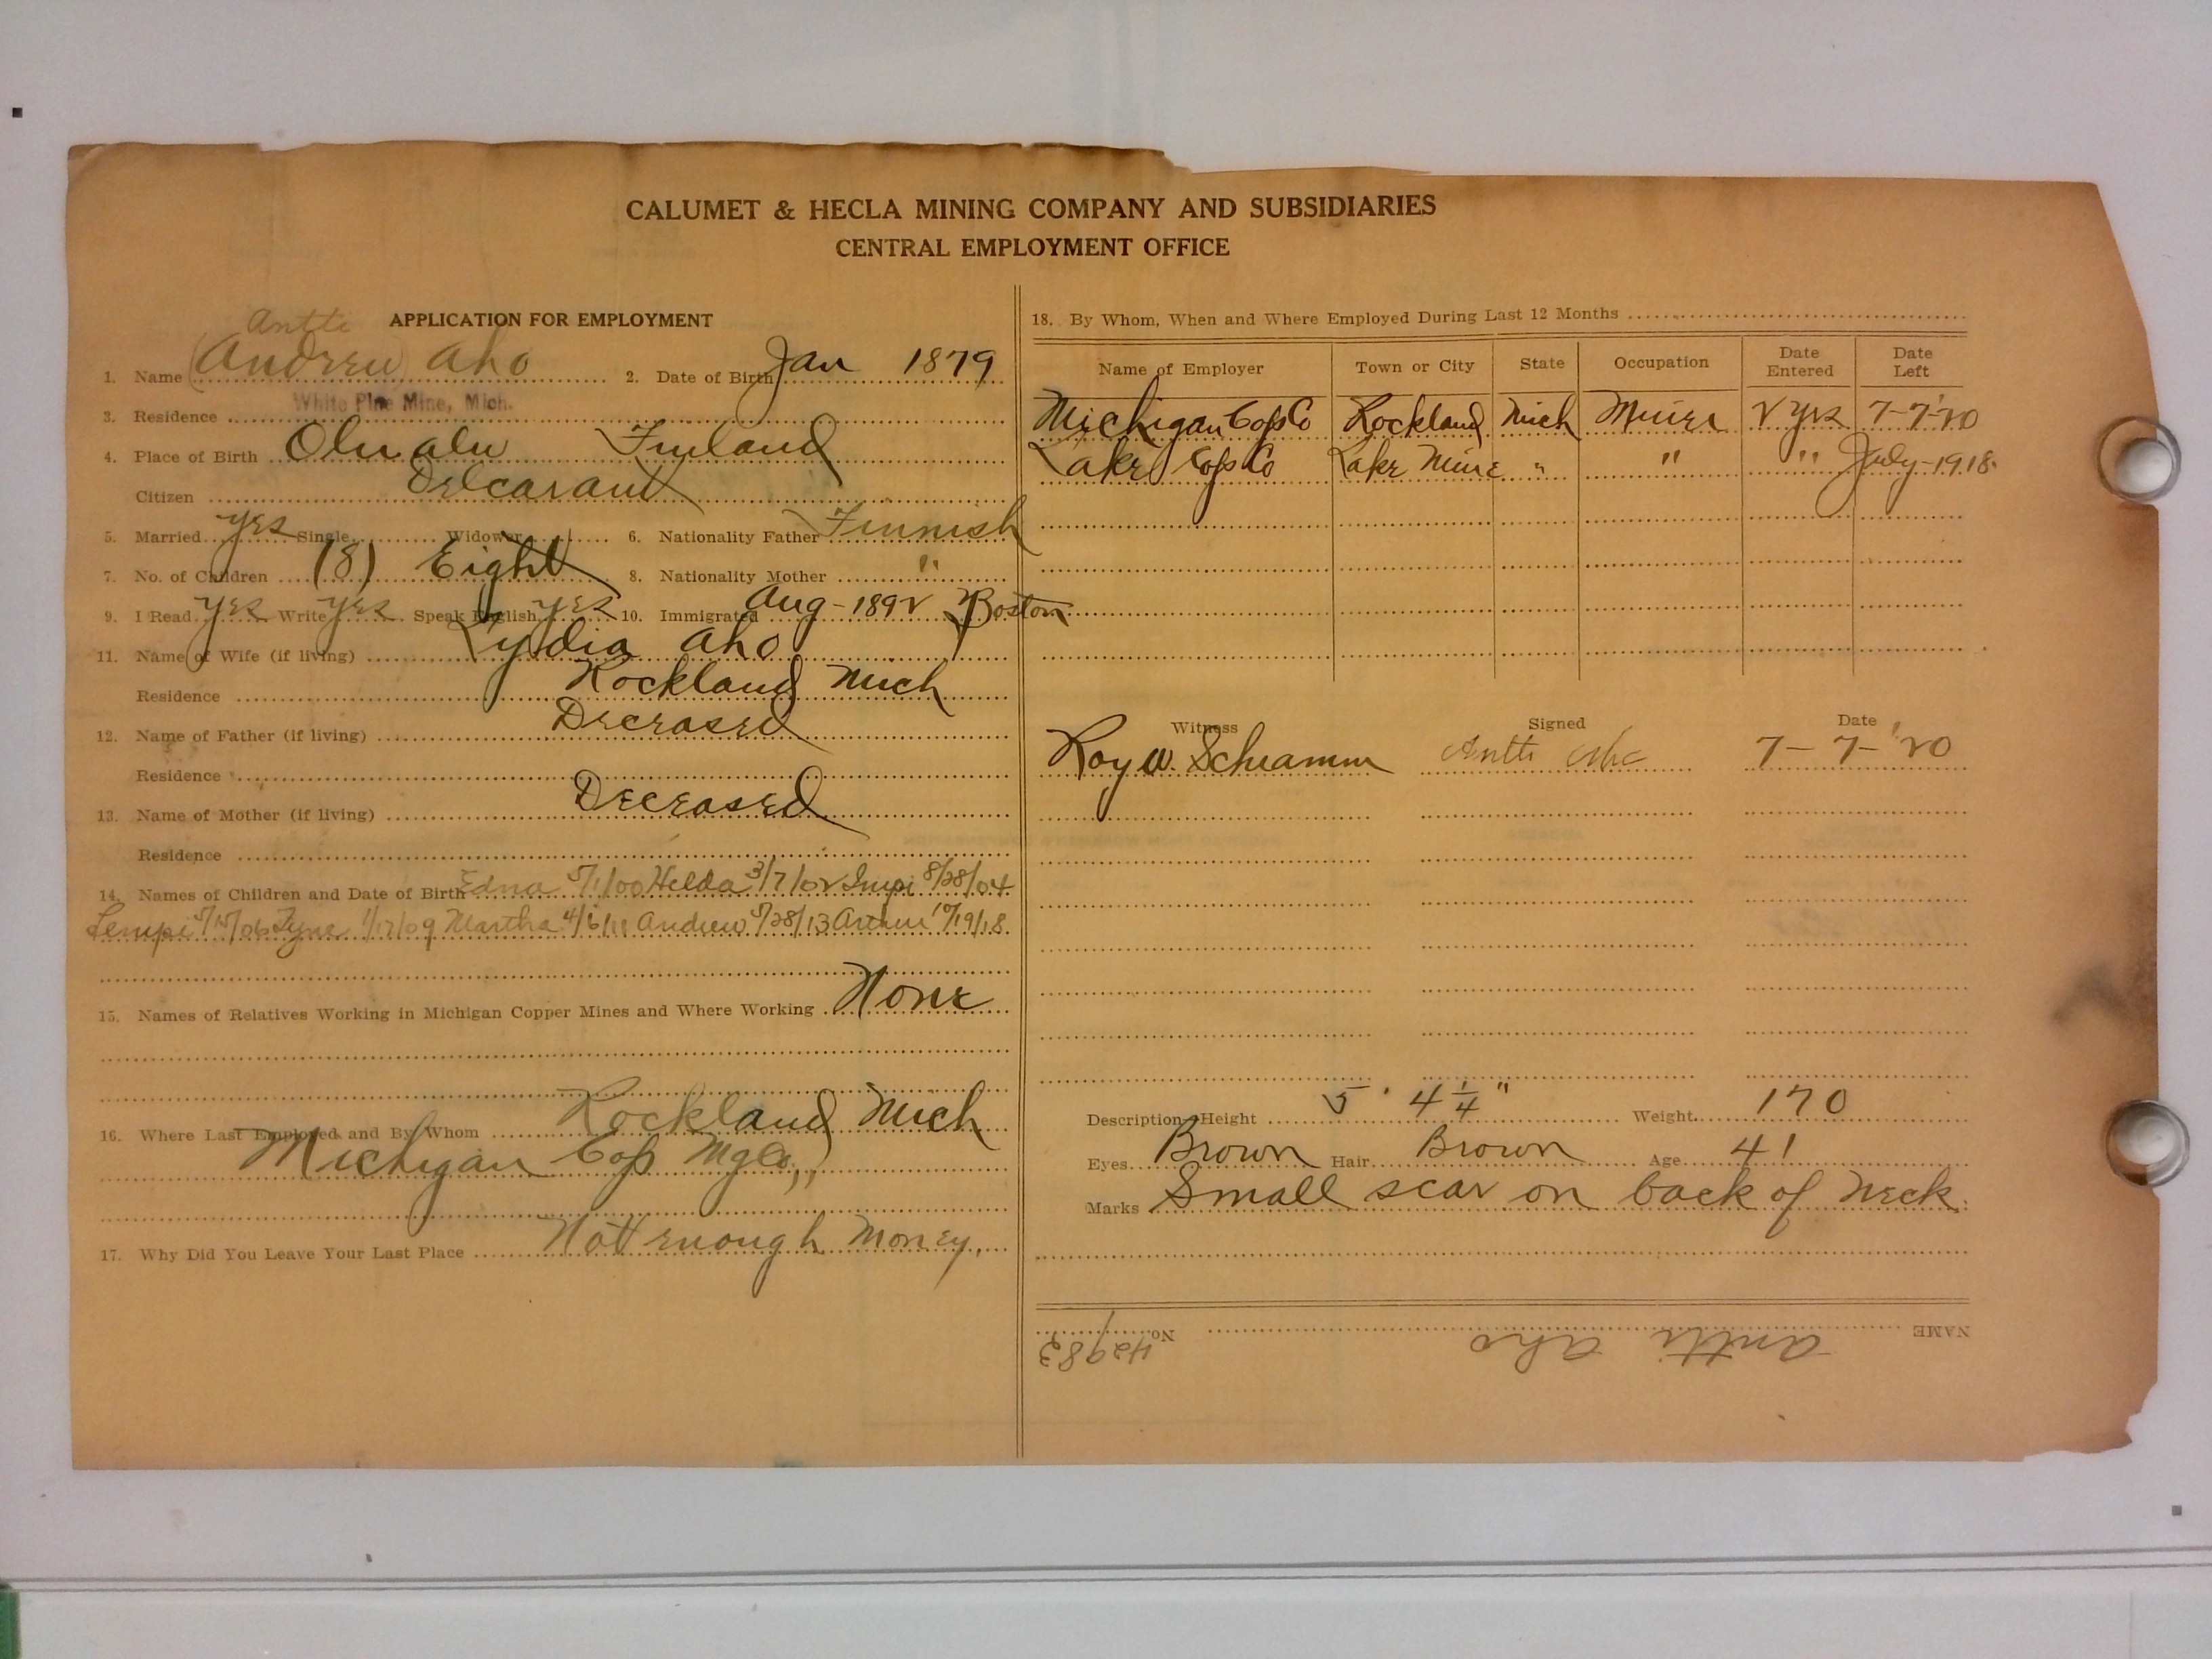 CALUMET & HECLA MINING COMPANY AND SUBSIDIARIES
CENTRAL EMPLOYMENT OFFICE
Antti
APPLICATION FOR EMPLOYMENT
1. Name (Andrew) Aho 2. Date of Birth Jan 1879
White Pine Mine, Mich.
3. Residence
4. Place of Birth Olualu Finland
Citizen Delcarant
5. Married yes Single Widower 6. Nationality Father Finnish
7. No. of Children (8) Eight 8. Nationality Mother "
9. I Read yes Write yes Speak English yes 10. Immigrated Aug - 1892 Boston
11. Name of Wife (if living) Lydia Aho
Residence Rockland Mich
12. Name of Father (if living) Deceased
Residence
13. Name of Mother (if living) Deceased
Residence
14. Names of Children and Date of Birth Edna 5/1/00 Helda 3/7/02 Impi 8/28/04
Lempi 5/15/06 Tyne 1/17/09 Martha 4/6/11 Andrew 5/28/13 Arthur 10/19/18
15. Names of Relatives Working in Michigan Copper Mines and Where Working None
16. Where Last Employed and By Whom Rockland Mich
Michigan Cop Mg Co,,
17. Why Did You Leave Your Last Place Not enough money.
18. By Whom, When and Where Employed During Last 12 Months
Name of Employer Town or City State Occupation Date Entered Date Left
Michigan Cop Co Rockland Mich Miner 2 yrs 7-7-'20
Lake Cop Co Lake Mine " " " July-1918
Witness Signed Date
Roy W. Schramm Antti Aho 7-7-'20
Description Height 5' 4 1/4" Weight 170
Eyes Brown Hair Brown Age 41
Marks Small scar on back of neck.
NAME Antti Aho No. 42983